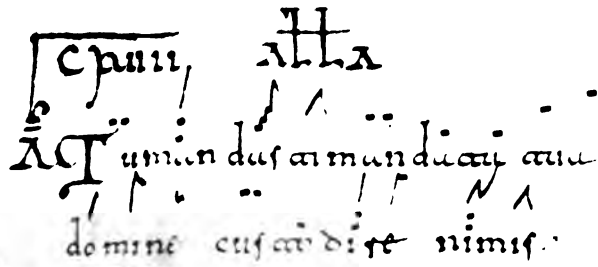 CXVIII AllA
A Tu mandasti mandata tua
domine custodire nimis.